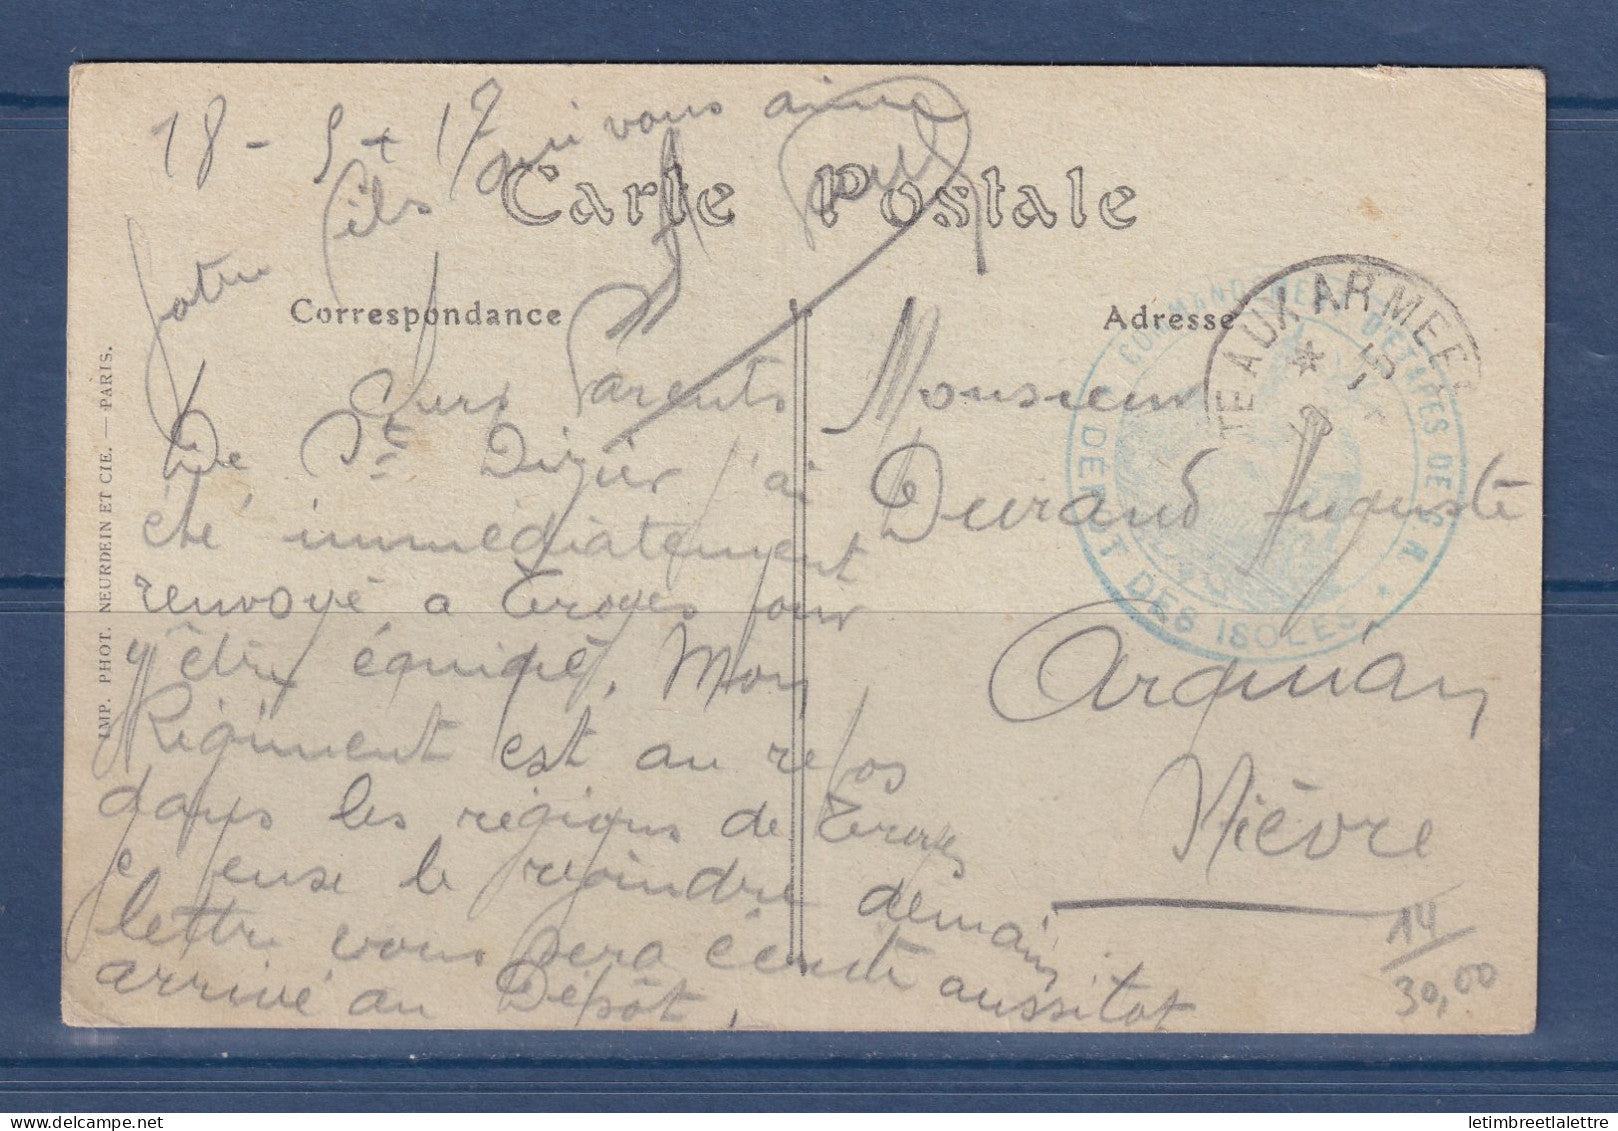 18 - 5 - 17
Carte Postale
Correspondance
Adresse
Chers Parents
De St Dizier j'ai
été immédiatement
renvoyé a Troyes pour
y être équipé. Mon
Régiment est au repos
dans les régions de Troyes
je pense le rejoindre demain
lettre vous sera écrite aussitot
arrivé au Dépôt.
Votre fils qui vous aime
Paul
Monsieur
Durand Auguste
Arquian
Nièvre
TE AUX ARMEES
COMMANDEMENT D'ETAPES DE G.R.
DÉPOT DES ISOLÉS
14
30,00
IMP. PHOT. NEURDEIN ET CIE. — PARIS.
letimbreetlalettre